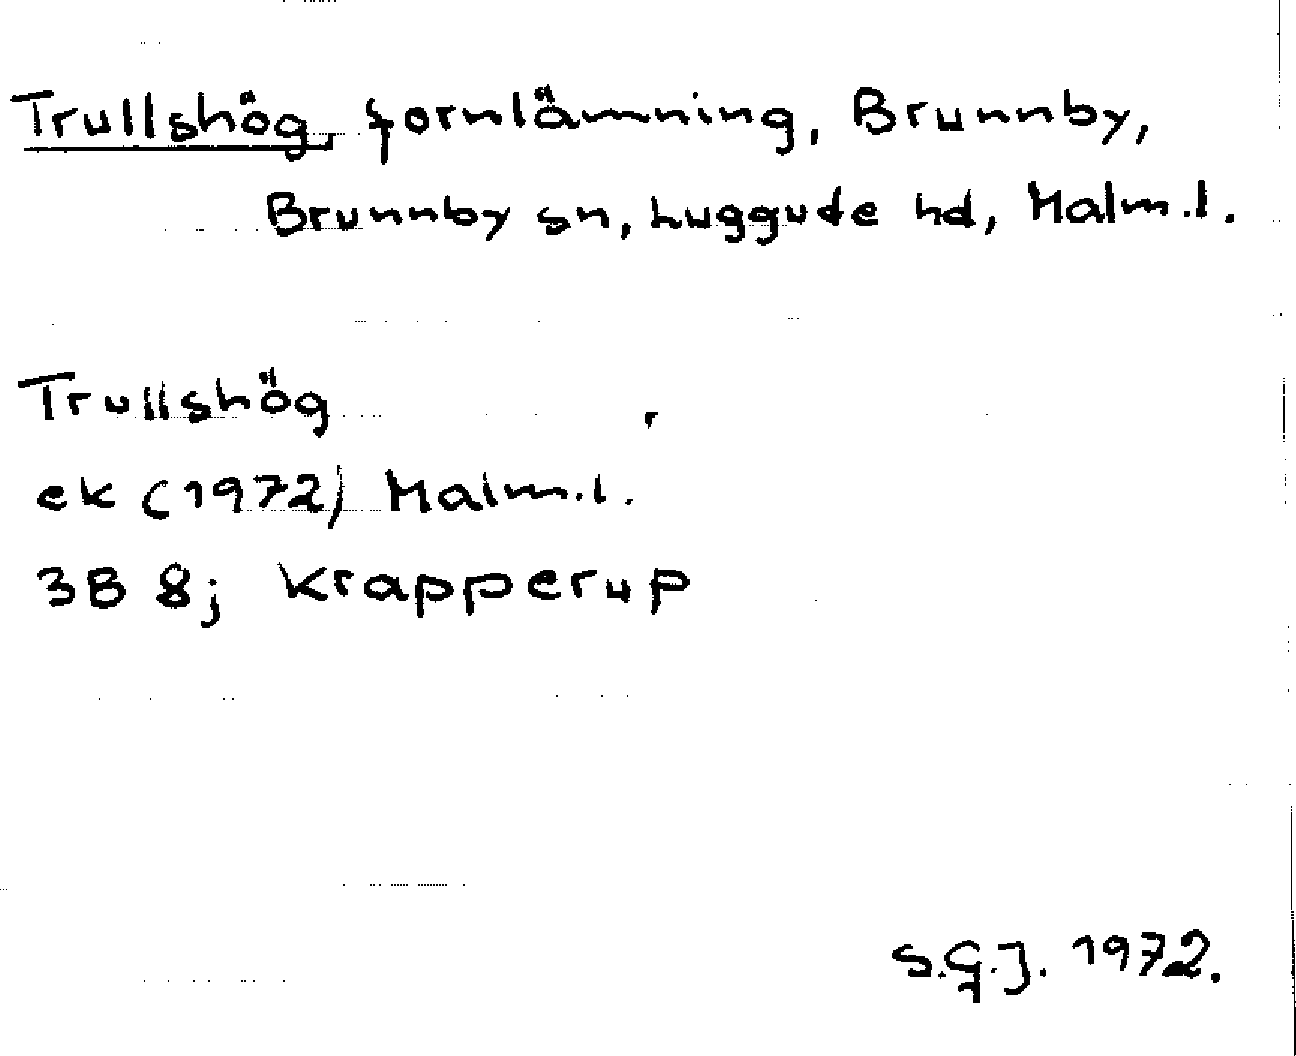 Trullshög, fornlämning, Brunnby,
Brunnby sn, Luggude hd, Malm.l.
Trullshög
ek (1972) Malm.l.
3B 8j Krapperup
S.G.J. 1972.